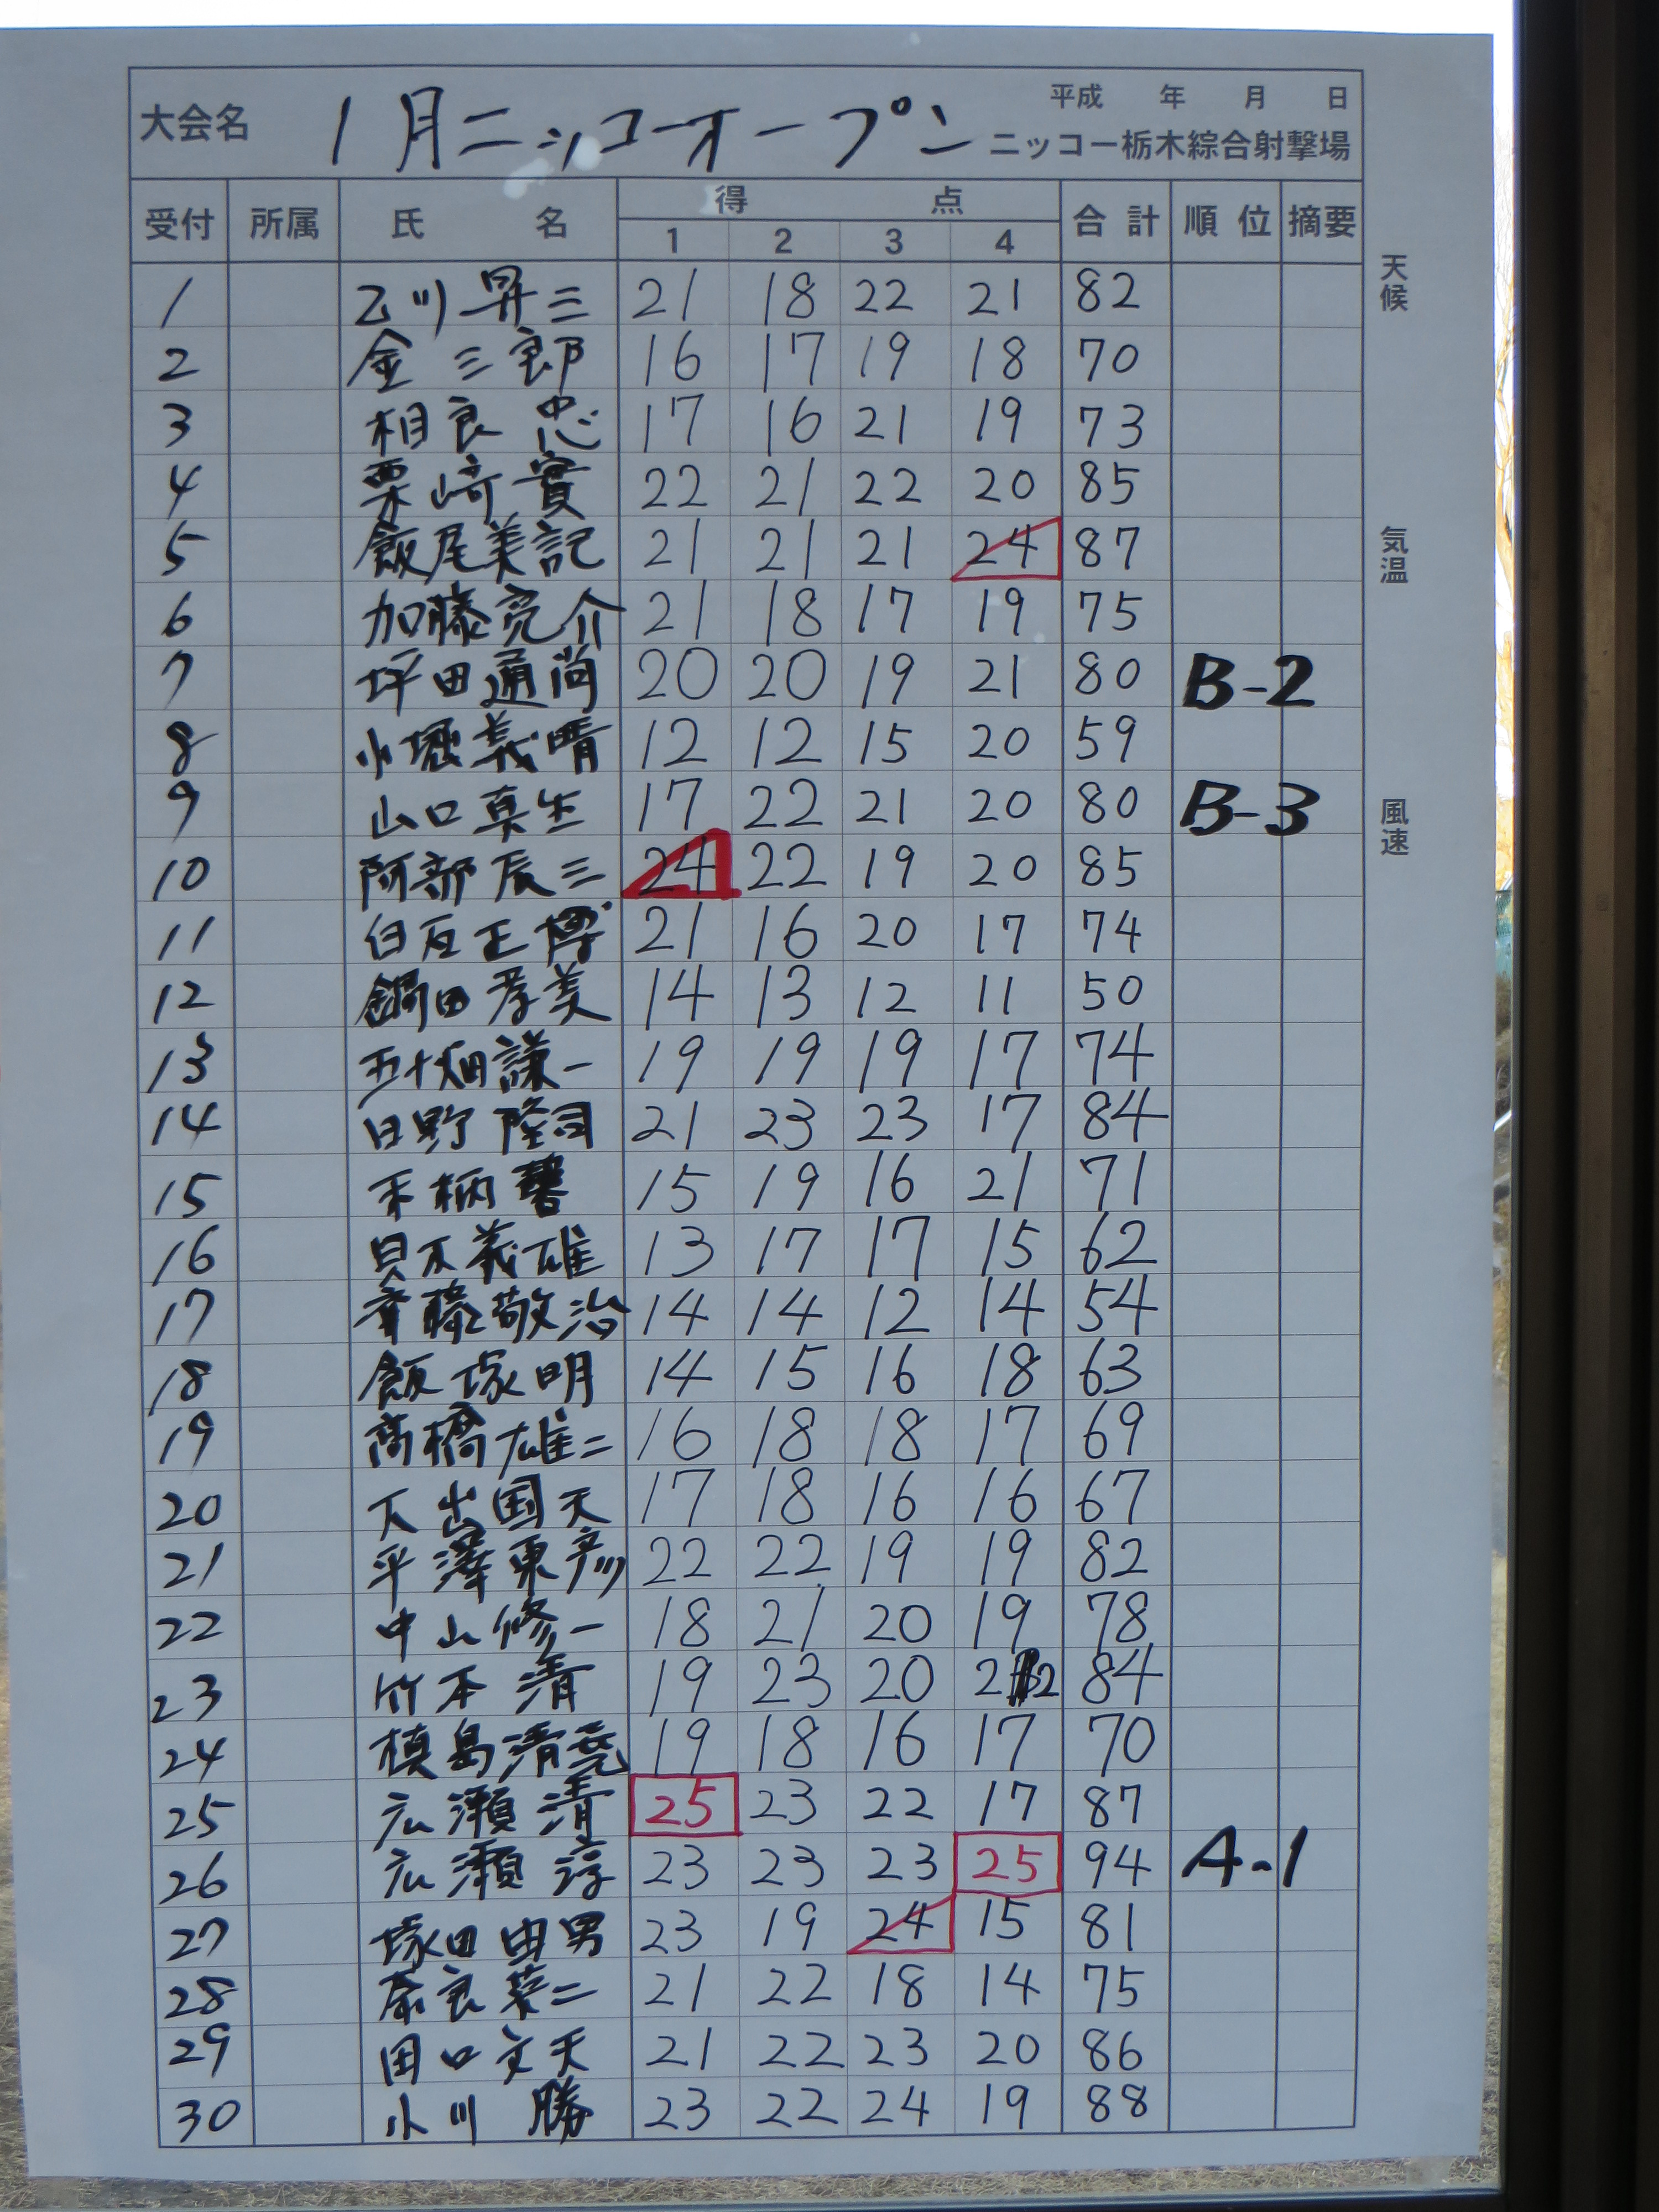 大会名 1月ニッコーオープン 平成 年 月 日
ニッコー栃木綜合射撃場
受付 所属 氏名 得点 合計 順位 摘要
1 2 3 4
1 乙川昇三 21 18 22 21 82
2 金三郎 16 17 19 18 70
3 相良忠 17 16 21 19 73
4 栗崎實 22 21 22 20 85
5 飯尾美記 21 21 21 24 87
6 加藤亮介 21 18 17 19 75
7 坪田通尚 20 20 19 21 80 B-2
8 小堀義晴 12 12 15 20 59
9 山口真生 17 22 21 20 80 B-3
10 阿部辰三 24 22 19 20 85
11 白石正博 21 16 20 17 74
12 鍋田孝美 14 13 12 11 50
13 五十畑謙一 19 19 19 17 74
14 日野隆司 21 23 23 17 84
15 15 19 16 21 71
16 義雄 13 17 17 15 62
17 齊藤敬治 14 14 12 14 54
18 飯塚明 14 15 16 18 63
19 高橋雄二 16 18 18 17 69
20 17 18 16 16 67
21 平澤東彦 22 22 19 19 82
22 中山修一 18 21 20 19 78
23 竹本清 19 23 20 22 84
24 槙島清 19 18 16 17 70
25 広瀬清 25 23 22 17 87
26 広瀬淳 23 23 23 25 94 A-1
27 塚田由男 23 19 24 15 81
28 奈良 二 21 22 18 14 75
29 田口文夫 21 22 23 20 86
30 小川勝 23 22 24 19 88
天候
気温
風速